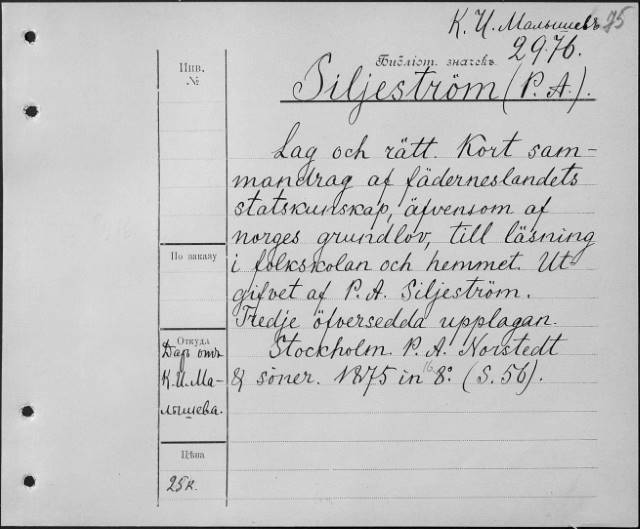 К. И. Малышевъ 75
2976.
Бібліот. значекъ
Siljeström (P. A.).
Инв.
№
Lag och rätt. Kort sam-
mandrag af fäderneslandets
statskunskap, äfvensom af
norges grundlov, till läsning
i folkskolan och hemmet. Ut-
gifvet af P. A. Siljeström.
Tredje öfversedda upplagan.
Stockholm. P. A. Norstedt
& söner. 1875 in 16 8:º (S. 56).
По заказу
Откуда
Даръ отъ
К. И. Ма-
лышева.
Цѣна
25 к.